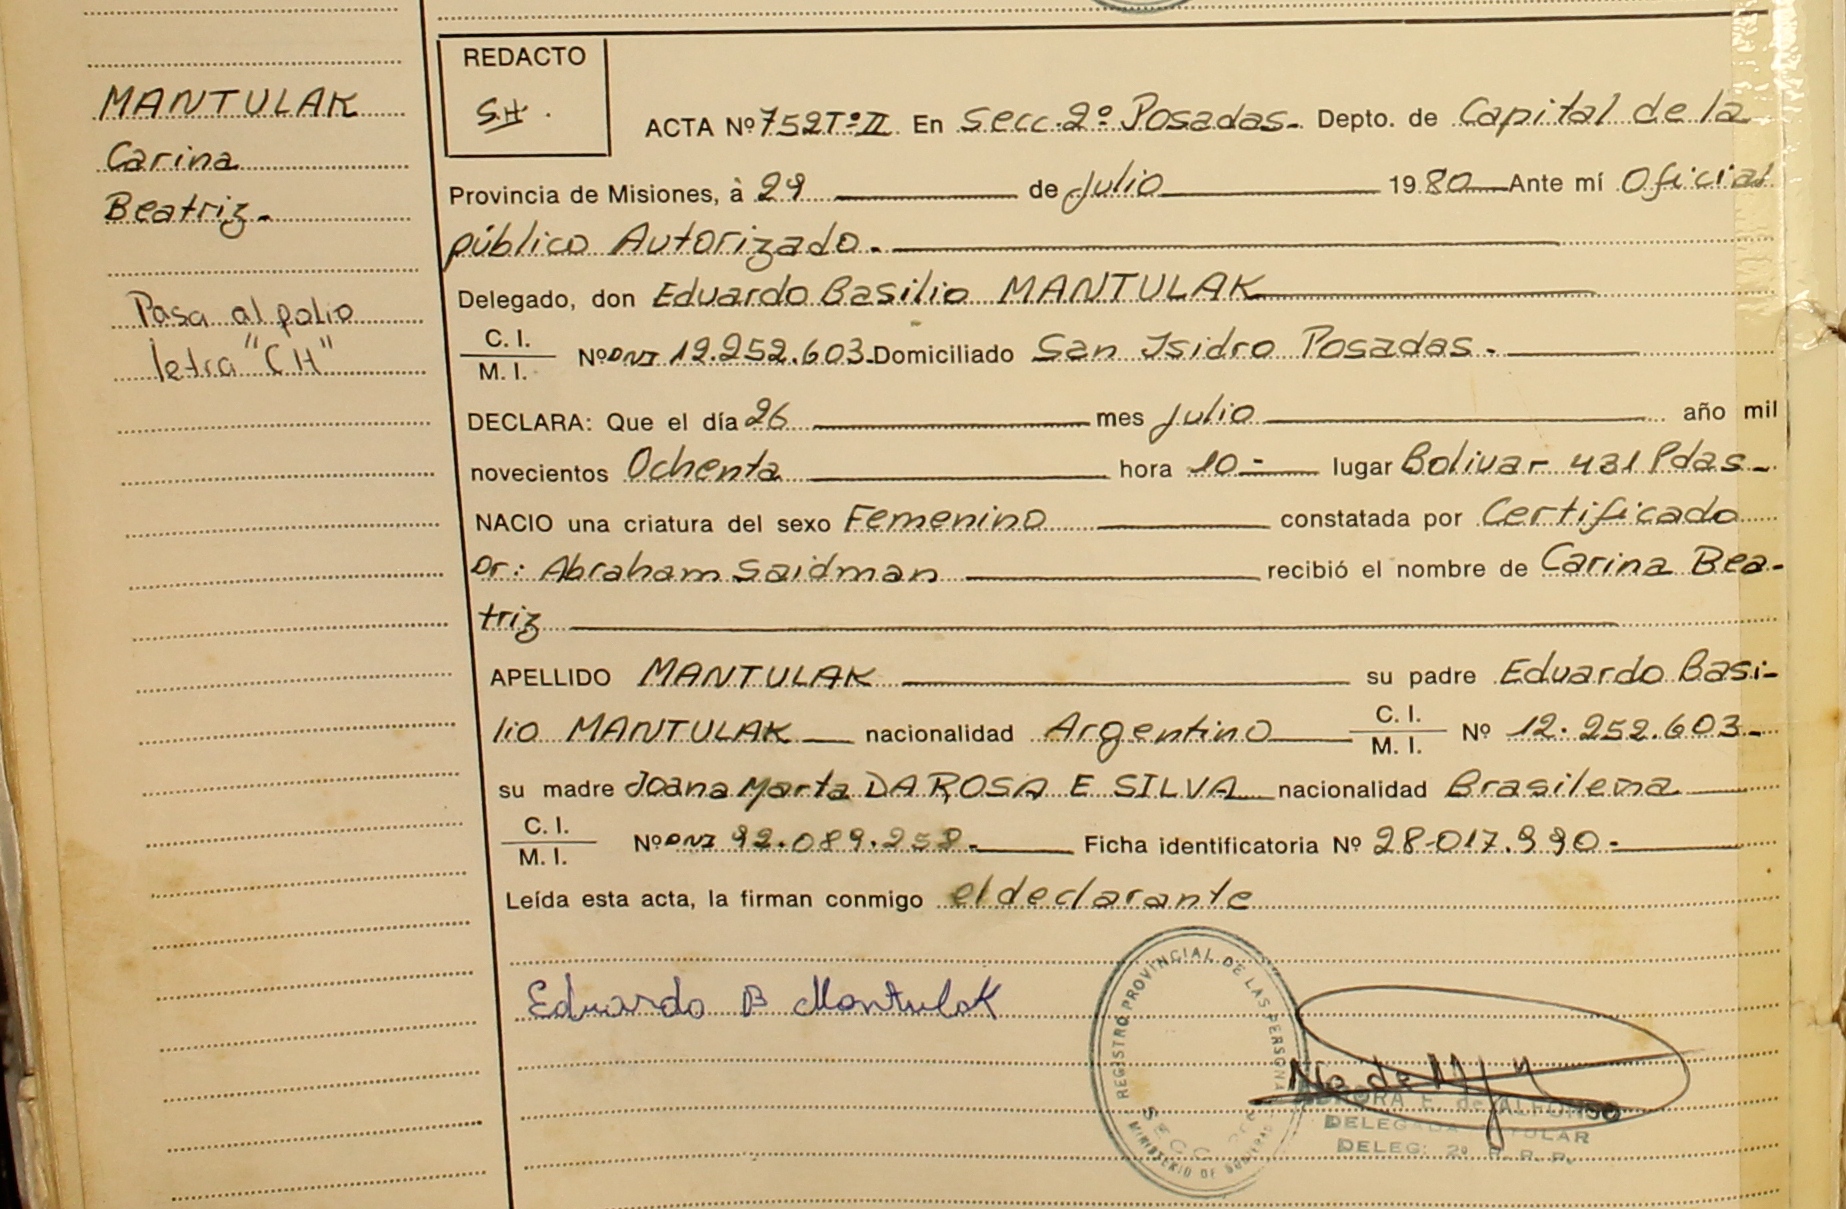 MANTULAK
Carina
Beatriz.
Pasa al folio
letra "CH"
REDACTO
S.H.
ACTA Nº 752 Tº II En Secc. 2º Posadas. Depto. de Capital de la
Provincia de Misiones, à 29 de Julio 1980 Ante mí Oficial
público Autorizado.
Delegado, don Eduardo Basilio MANTULAK
C. I.
M. I. Nº DNI 12.252.603. Domiciliado San Isidro Posadas.
DECLARA: Que el día 26 mes Julio año mil
novecientos Ochenta hora 10- lugar Bolivar 431 Pdas.
NACIO una criatura del sexo Femenino constatada por Certificado
Dr: Abraham Saidman recibió el nombre de Carina Bea-
triz
APELLIDO MANTULAK su padre Eduardo Basi-
lio MANTULAK nacionalidad Argentino C. I. M. I. Nº 12.252.603.
su madre Joana Marta DA ROSA E SILVA nacionalidad Brasileña
C. I.
M. I. Nº DNI 92.089.258. Ficha identificatoria Nº 28.017.990.
Leída esta acta, la firman conmigo el declarante
Eduardo B Mantulak
REGISTRO PROVINCIAL DE LAS PERSONAS
SECC.
MINISTERIO DE
E. de ALFONSO
DELEGADA TITULAR
DELEG: 2º R. R. P.